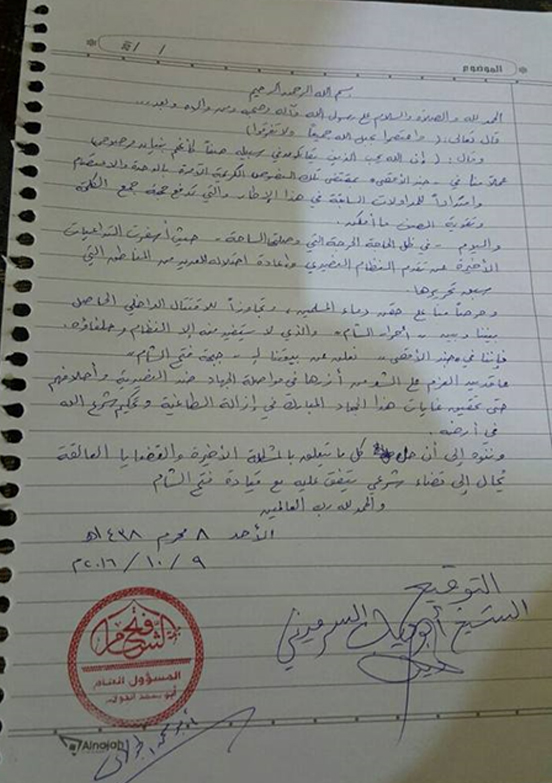 الموضوع
/ /
بسم الله الرحمن الرحيم
الحمد لله والصلاة والسلام على رسول الله وآله وصحبه ومن والاه وبعد...
قال تعالى: (واعتصموا بحبل الله جميعاً ولا تفرقوا)
وقال: (إن الله يحب الذين يقاتلون في سبيله صفاً كأنهم بنيان مرصوص)
عملاً منا في «جند الأقصى» بمقتضى تلك النصوص الكريمة الآمرة بالوحدة والاعتصام
وامتداداً للمداولات السابقة في هذا الإطار والتي تدفع جهة جمع الكلمة
وتقوية الصف ما أمكن.
واليوم - في ظل الحالة الحرجة التي وصلتها الساحة - حيث أسفرت التداعيات
الأخيرة عن تقدم النظام النصيري وإعادة احتلاله للعديد من المناطق التي
سبق تحريرها.
وحرصاً منا على حقن دماء المسلمين، وتجاوزاً للاقتتال الداخلي الحاصل
بيننا وبين «أحرار الشام» والذي لا يستفيد منه إلا النظام وحلفاؤه.
فإننا في «جند الأقصى» نعلن عن بيعتنا لـ «جبهة فتح الشام»
عاقدين العزم على الشد من أزرها في مواصلة الجهاد ضد النصيرية وأحلافهم
حتى تحقيق غايات هذا الجهاد المبارك في إزالة الطاغية وتحكيم شرع الله
في أرضه.
وننوه إلى أن حل كل ما يتعلق بالمشكلة الأخيرة والقضايا العالقة
يُحال إلى قضاء شرعي يتفق عليه مع قيادة فتح الشام
والحمد لله رب العالمين
الأحد ٨ محرم ١٤٣٨هـ
٩ / ١٠ / ٢٠١٦م
التوقيع
الشيخ أبو دياب السرميني
فتح الشام
المسؤول العام
أبو محمد الجولاني
أبو محمد الجولاني
Alnajah